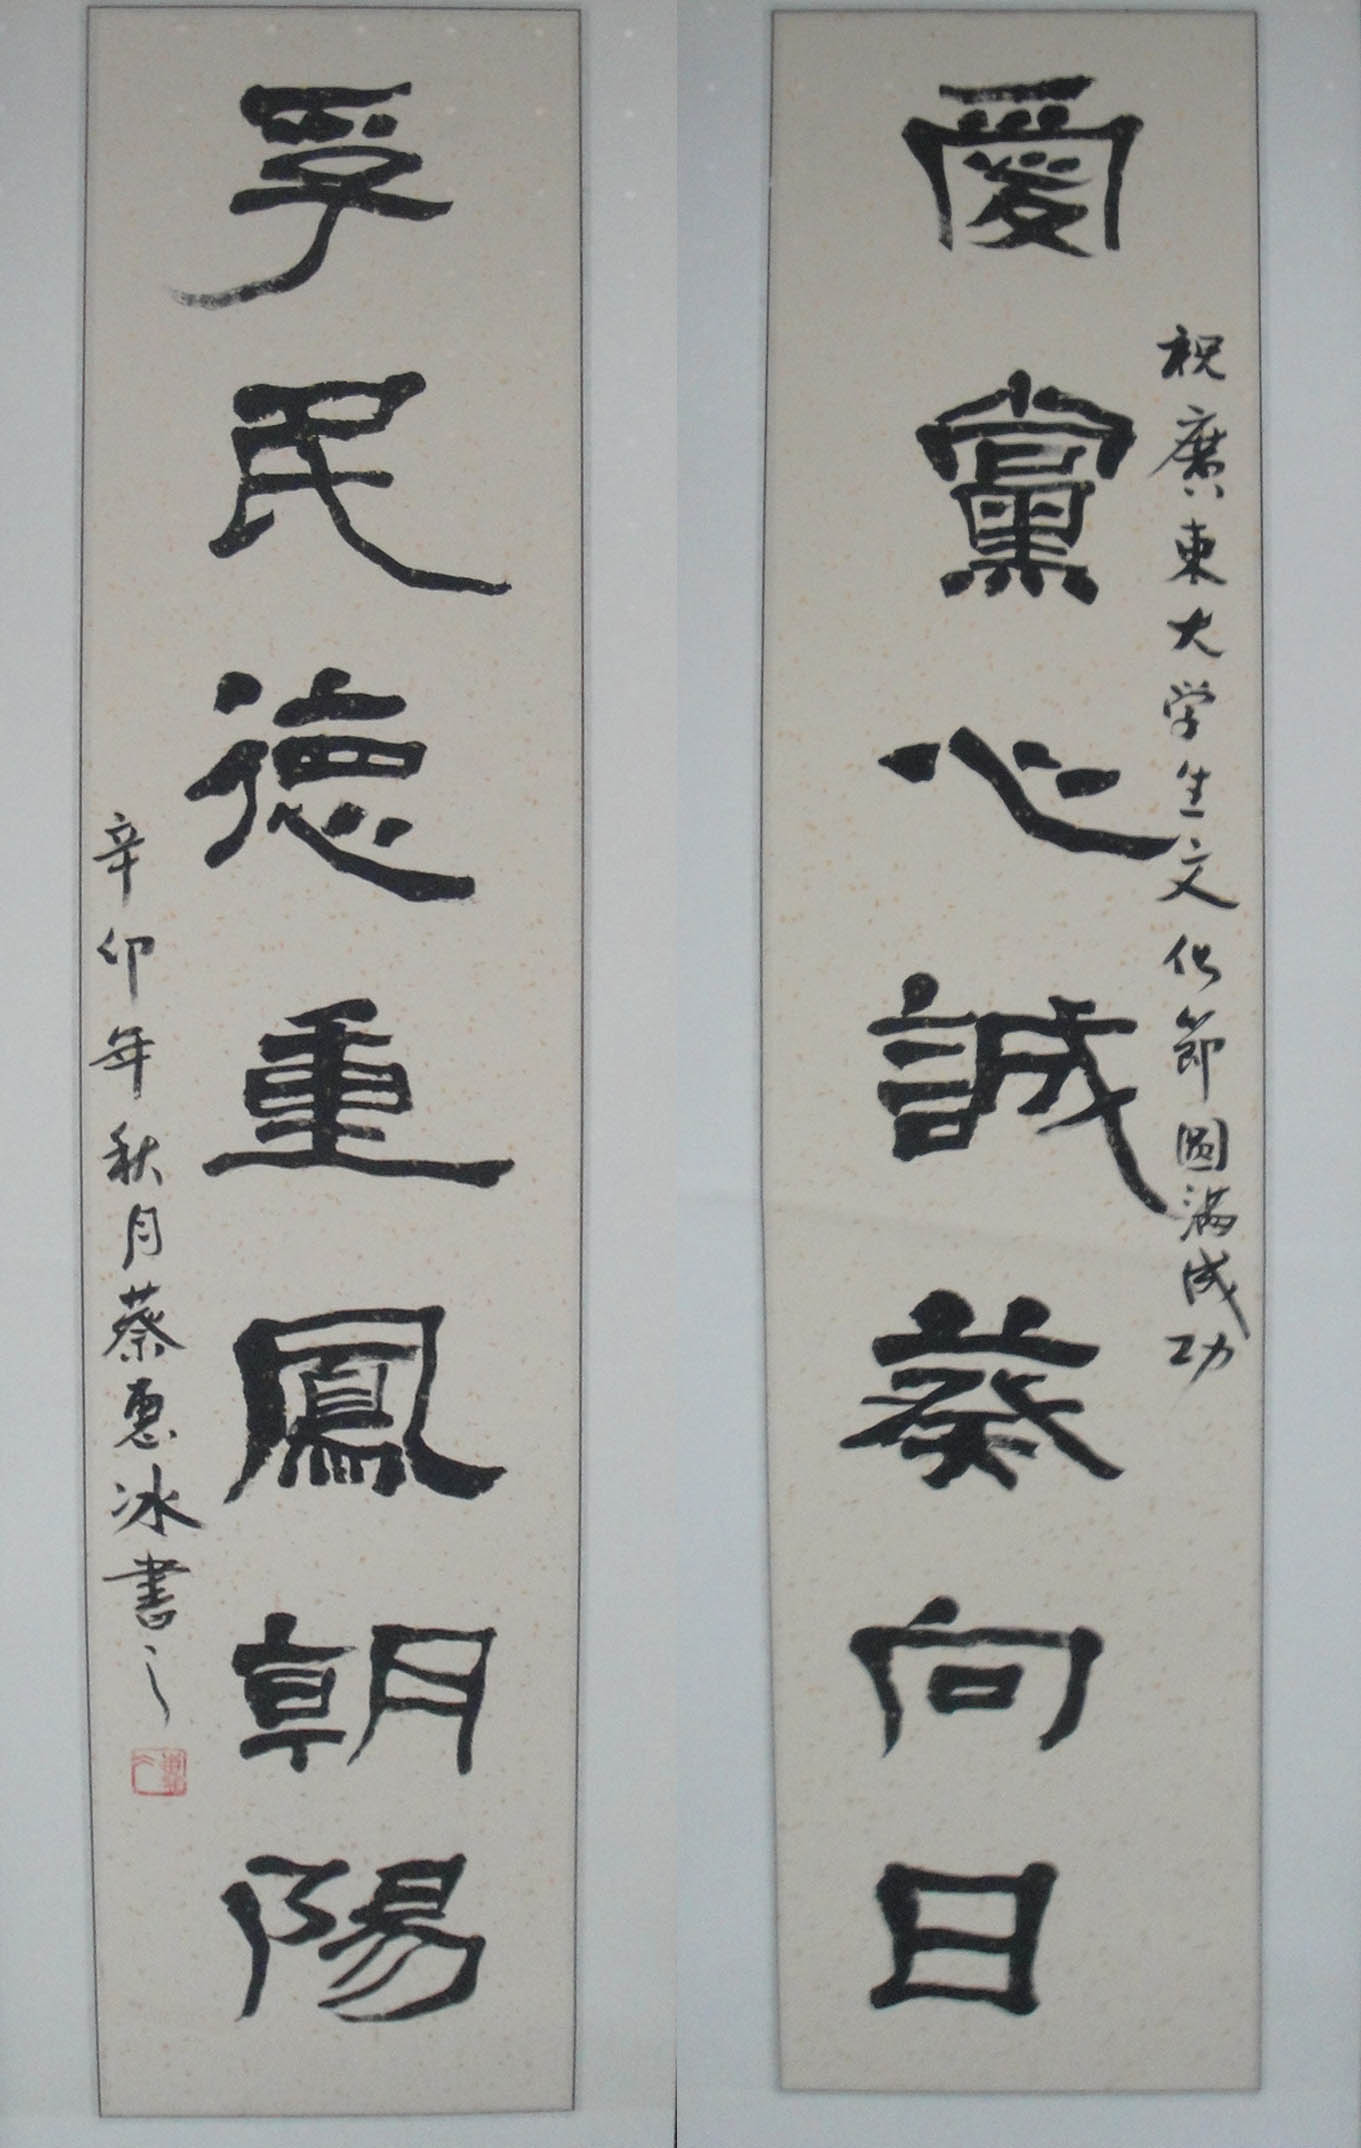 祝廣東大学生文化節圆满成功
愛黨心誠葵向日
孚民德重鳳朝陽
辛卯年秋月蔡惠冰書之